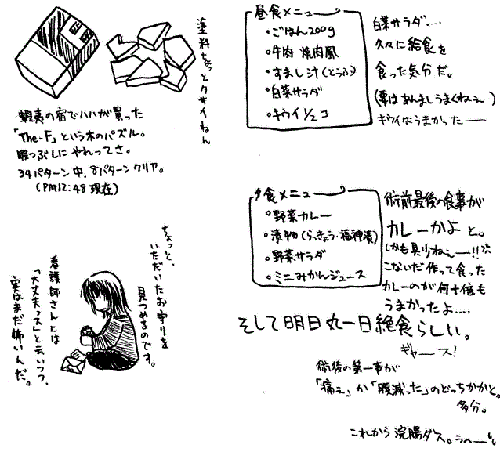 塗料がちっとクサイねん
朝、表の宿でハハが買った
「The-F」という木のパズル。
暇つぶしにやれってさ。
34パターン中、8パターンクリヤ。
(PM12:48 現在)
昼食メニュー
・ごはん200g
・牛肉 焼肉風
・すまし汁(とうふ)
・白菜サラダ
・キウイ1/2コ
白菜サラダ…
久々に給食を
食った気分だ。
(実はあんましうまくねぇー)
キウイはうまかったー
夕食メニュー
・野菜カレー
・漬物(らっきょう・福神漬)
・野菜サラダ
・ミニみかんジュース
術前最後の食事が
カレーかよ と。
しかも具りねぇー!!
こないだ作って食った
カレーのが何十倍も
うまかったよ…
そして明日丸一日絶食らしい。
ギャース!
術後の第一声が
「痛ぇ」か「腹減った」のどっちかかと。
多分。
これから浣腸ダス。
ちょっと、
いただいたお守りを
見つめるのです。
看護師さんとは
「大丈夫っスー」と云いつつ、
実はまだ怖いんだ。